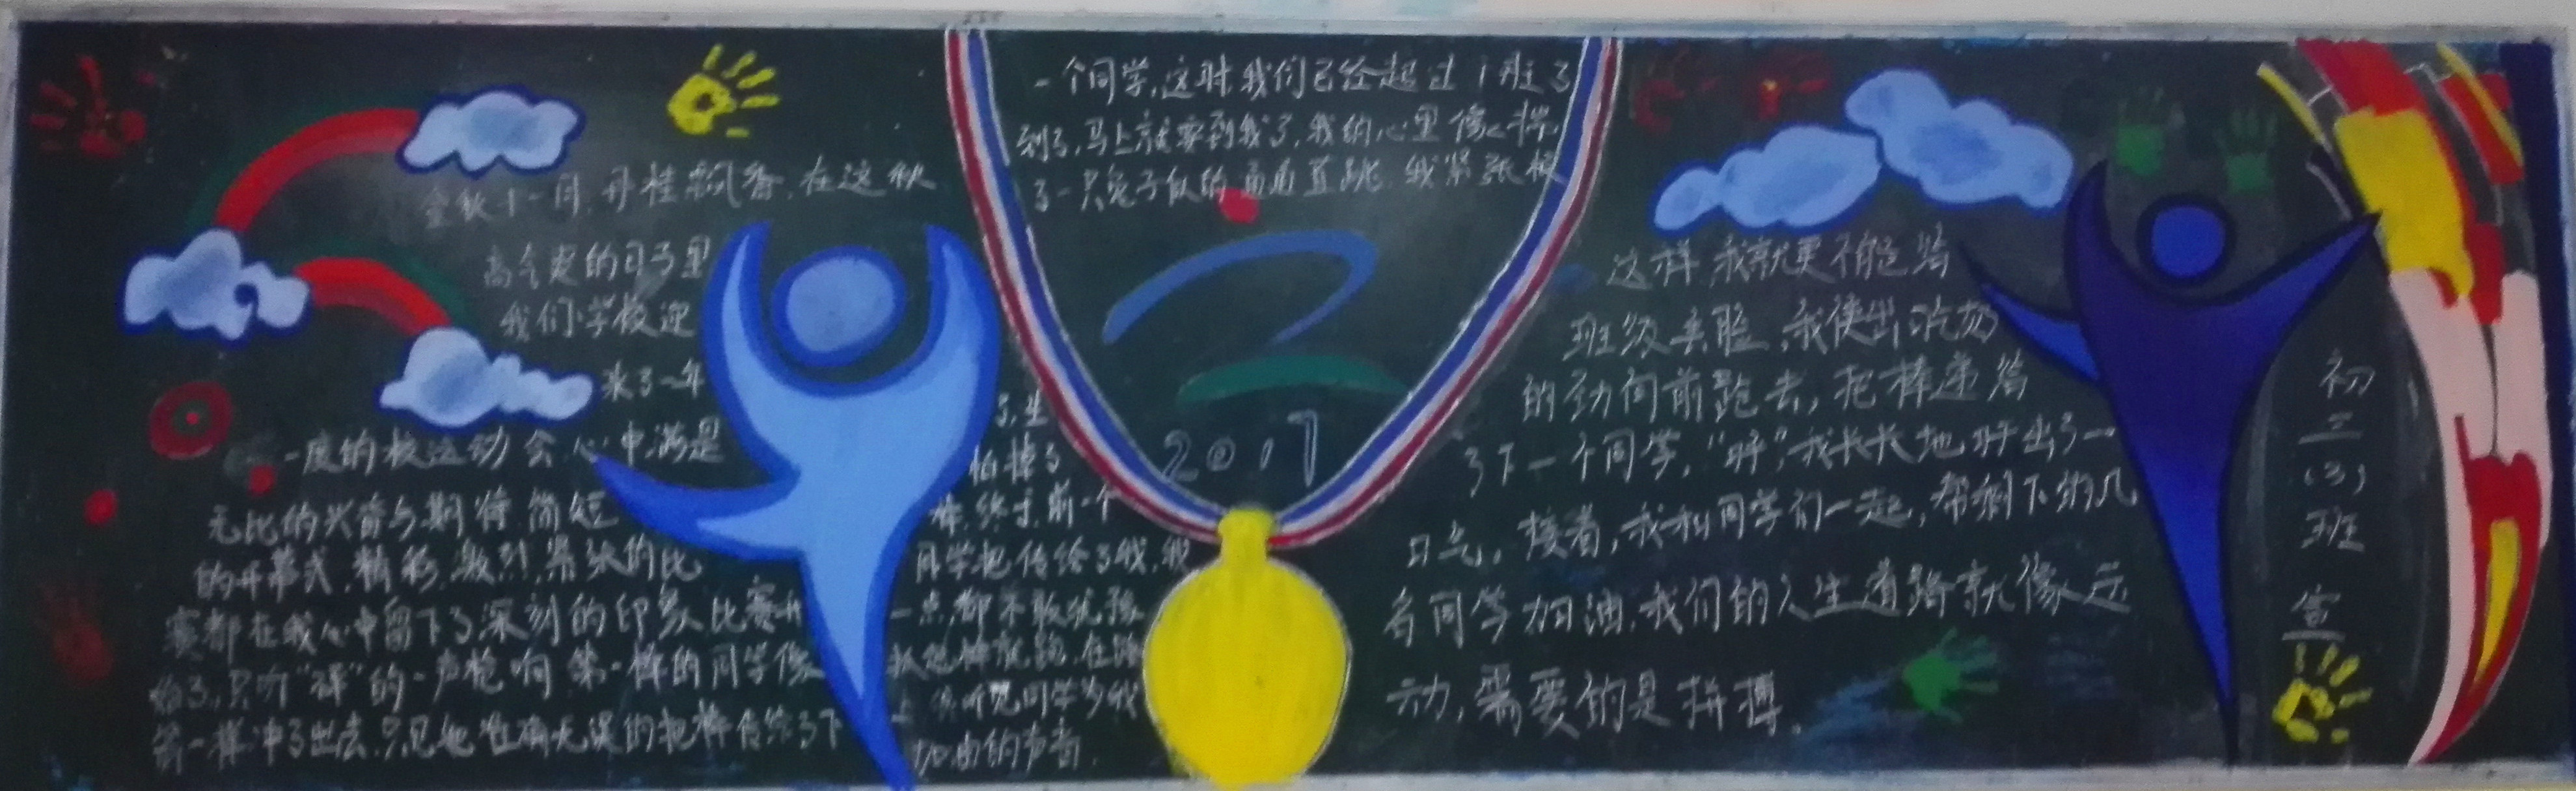 金秋十一月,丹桂飘香,在这秋
高气爽的日子里
我们学校迎
来了一年
一度的校运动会心中满是
无比的兴奋与期待,简短
的开幕式,精彩,激烈,紧张的比
赛都在我心中留下了深刻的印象比赛开
始了,只听“砰”的一声枪响,第一棒的同学像
箭一样冲了出去,只见他准确无误的把棒传给了下
一个同学,这时我们已经超过1班了
到了,马上就要到我了,我的心里像揣
了一只兔子似的直直直跳,我紧张极
了,生
怕掉了
棒,终于,前一个
同学把传给了我,我
一点都不敢犹豫
执起棒就跑,在跑
听见同学为我
加油的声音.
2017
这样,我就更不能给
班级丢脸,我使出吃奶
的劲向前跑去,把棒递给
了下一个同学,“呼”,我长长地呼出了一
口气,接着,我和同学们一起,帮剩下的几
名同学加油,我们的人生道路就像运
动,需要的是拼搏.
初三(3)班宣